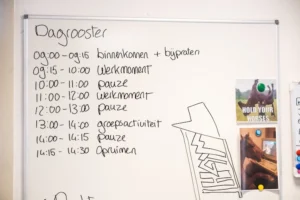 Dagrooster
09:00 - 09:15 binnenkomen + bijpraten
09:15 - 10:00 Werkmoment
10:00 - 11:00 pauze
11:00 - 12:00 Werkmoment
12:00 - 13:00 pauze
13:00 - 14:00 groepsactiviteit
14:00 - 14:15 Pauze
14:15 - 14:30 Opruimen
HOLD YOUR
HORSES